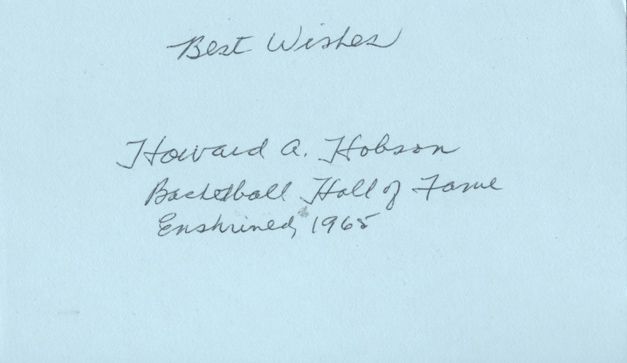 Best Wishes
Howard A. Hobson
Basketball Hall of Fame
Enshrined, 1965